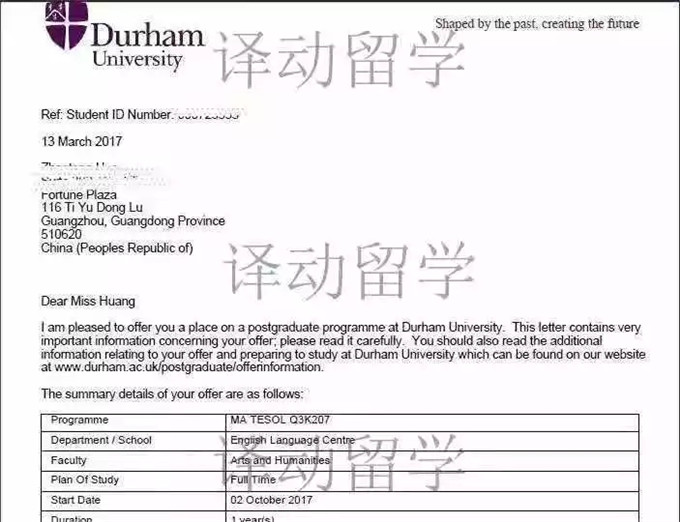 Durham
University
Shaped by the past, creating the future
译动留学
Ref: Student ID Number:
13 March 2017
Fortune Plaza
116 Ti Yu Dong Lu
Guangzhou, Guangdong Province
510620
China (Peoples Republic of)
译动留学
Dear Miss Huang
I am pleased to offer you a place on a postgraduate programme at Durham University. This letter contains very
important information concerning your offer; please read it carefully. You should also read the additional
information relating to your offer and preparing to study at Durham University which can be found on our website
at www.durham.ac.uk/postgraduate/offerinformation.
The summary details of your offer are as follows:
Programme MA TESOL Q3K207
Department / School English Language Centre
Faculty Arts and Humanities
译动留学
Plan Of Study Full Time
Start Date 02 October 2017
Duration 1 year(s)